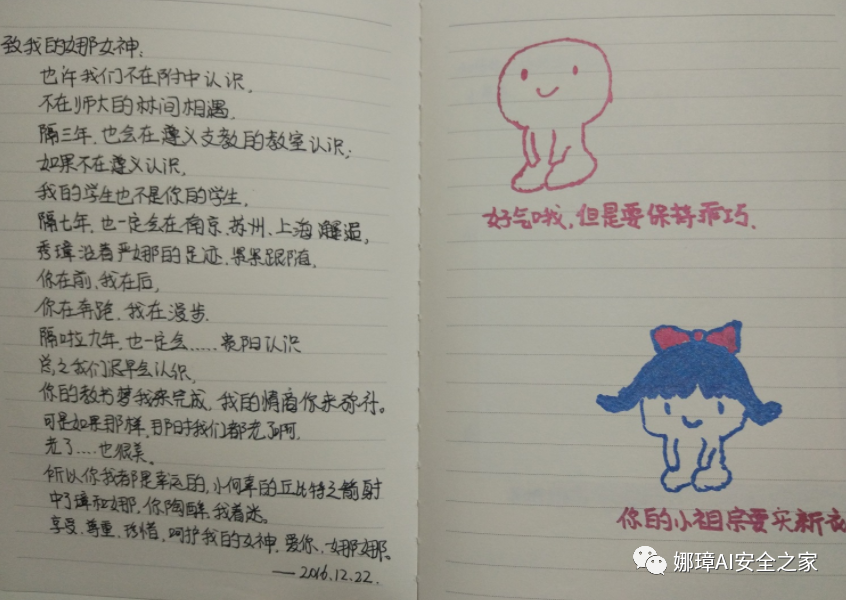 致我的娜女神：
也许我们不在附中认识，
不在师大的林间相遇，
隔三年，也会在遵义支教的教室认识；
如果不在遵义认识，
我的学生也不是你的学生，
隔七年，也一定会在南京、苏州、上海邂逅，
秀璋沿着严娜的足迹，累累跟随，
你在前，我在后，
你在奔跑，我在漫步，
隔啦九年，也一定会……贵阳认识
总之我们迟早会认识，
你的教书梦我来完成，我的情商你来弥补。
可是如果那样，那时我们都老了啊，
老了……也很美。
所以你我都是幸运的，小何幸的丘比特之箭射
中了璋和娜，你陶醉，我着迷。
享受、尊重、珍惜、呵护我的女神，爱你，娜娜。
——2016.12.22.
好气哦，但是要保持乖巧.
你的小祖宗要买新衣
娜璋AI安全之家